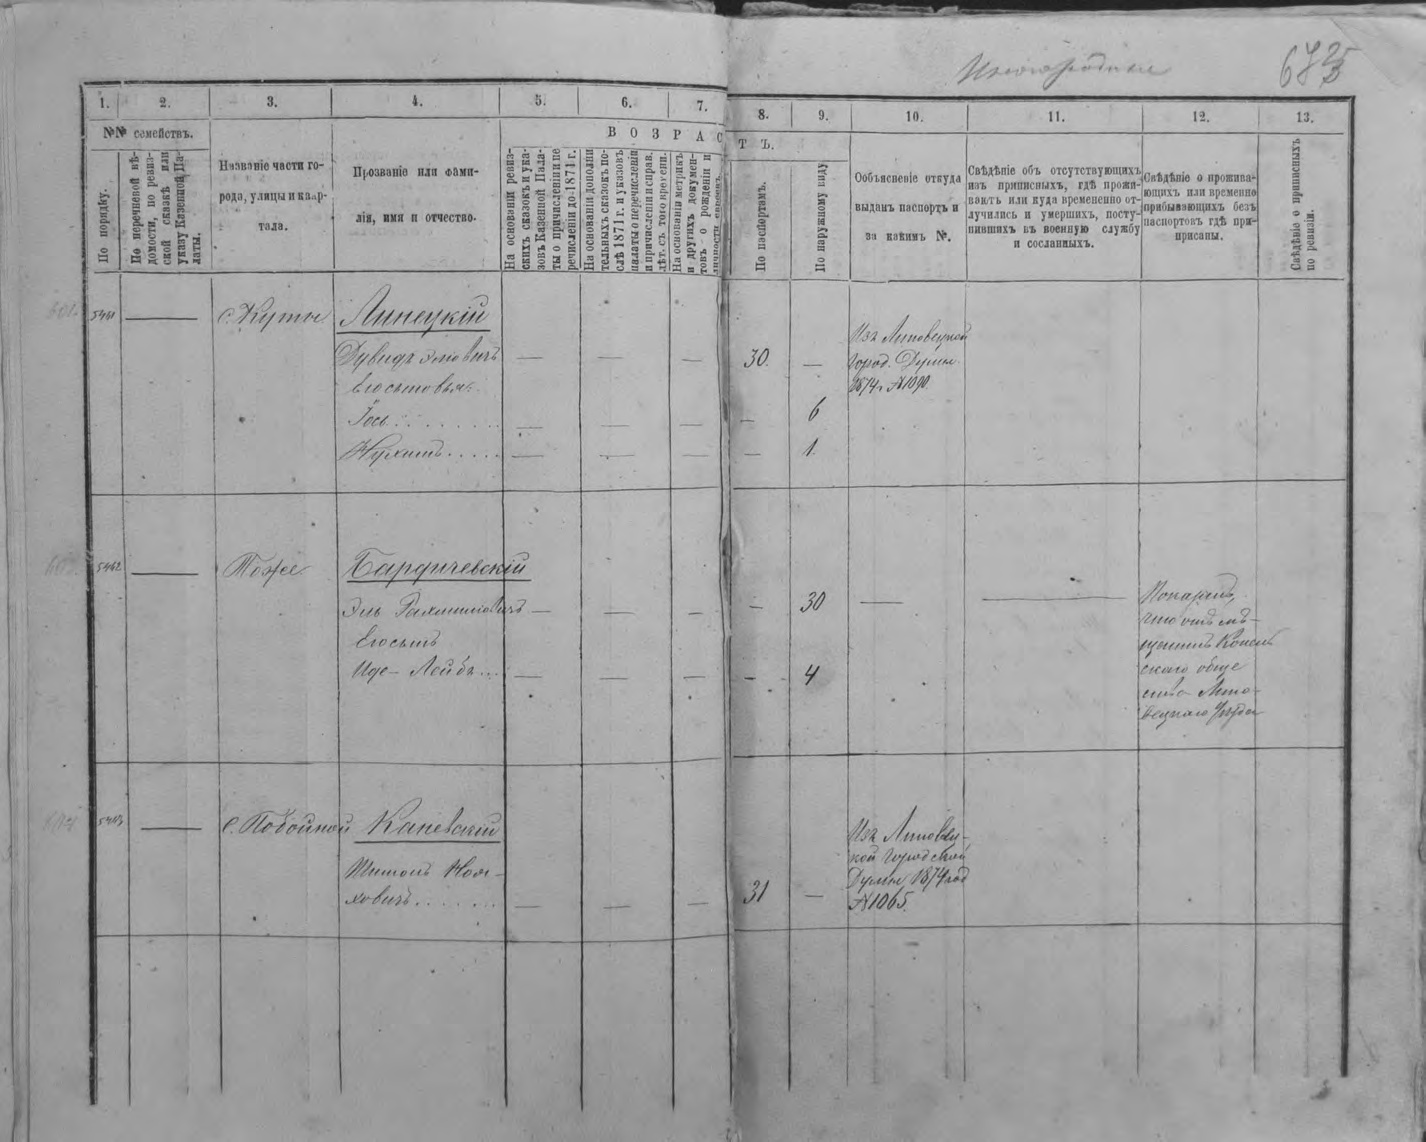 Иногородные
1.
2.
3.
4.
5.
6.
7.
8.
9.
10.
11.
12.
13.
№№ семействъ.
По порядку.
По перечневой вѣ-
домости, по ревиз-
ской сказкѣ или
указу Казенной Па-
латы.
Названіе части го-
рода, улицы и квар-
тала.
Прозваніе или фами-
лія, имя и отчество.
ВОЗРАСТЪ.
На основаніи ревиз-
скихъ сказокъ и ука-
зовъ Казенной Пала-
ты о причисленіи и пе
речисленіи до 1871 г.
На основаніи дополни
тельныхъ сказокъ по-
слѣ 1871 г. и указовъ
палаты о перечисленіи
и причисленіи и справ.
лѣт. съ того времени.
На основаніи метрикъ
и другихъ докумен-
товъ о рожденіи и
личности евреевъ.
По паспортамъ.
По наружному виду
Объясненіе откуда
выданъ паспортъ и
за какимъ №.
Свѣдѣніе объ отсутствующихъ
изъ приписныхъ, гдѣ прожи-
ваютъ или куда временно от-
лучились и умершихъ, посту-
пившихъ въ военную службу
и сосланныхъ.
Свѣдѣніе о прожива-
ющихъ или временно
прибывающихъ безъ
паспортовъ гдѣ при-
писаны.
Свѣдѣніе о приписныхъ
по ревизіи.
5461
Линецкій
Дувидъ
30.
Изъ Липовецкой
Город. Думы
1874 г. №1090.
Іось
6
1.
5462
Тоже
Бардичевскій
30
Иде-Лейбъ
4
Показалъ,
что онъ мѣ-
щанинъ Конель
скаго обще
ства Липо-
вецкаго уѣзда
5463
с. Побойной
Каневскій
Шимонъ
ховичъ
31
Изъ Липовец-
кой Городской
Думы 1874 год
№1065.